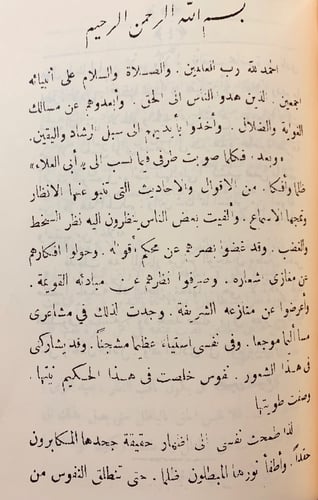 بسم الله الرحمن الرحيم
الحمد لله رب العالمين . والصلاة والسلام على أنبيائه
أجمعين . الذين هدو الناس الى الحق . وأبعدوهم عن مسالك
الغواية والضلال . وأخذوا بأيديهم الى سبل الرشاد واليقين .
« وبعد » فكلما صوبت طرفى فيما نسب الى « أبى العلاء »
ظلما وأفكا . من الاقوال والاحاديث التى تنبو عنها الانظار
وتمجها الاسماع . وألفيت بعض الناس ينظرون اليه نظر السخط
والغضب . وقد غضوا بصرهم عن محكم أقواله . وحولوا افكارهم
عن مغازى اشعاره . وصرفوا نظارهم عن مبادئه القويمة .
وأعرضوا عن منازعه الشريفة . وجدت لذلك فى مشاعرى
مسا أليما موجعا . وفى نفسى استياء عظيما مشجناً . وقد يشاركنى
فى هذا الشعور . نفوس خلصت فى هذا الحكيم نيتها .
وصفت طويتها
لذا طمحت نفسى الى اظهار حقيقة جحدها المكابرون
حقداً . وأطفأ نورها المبطلون ظلما . حتى تنطلق النفوس من